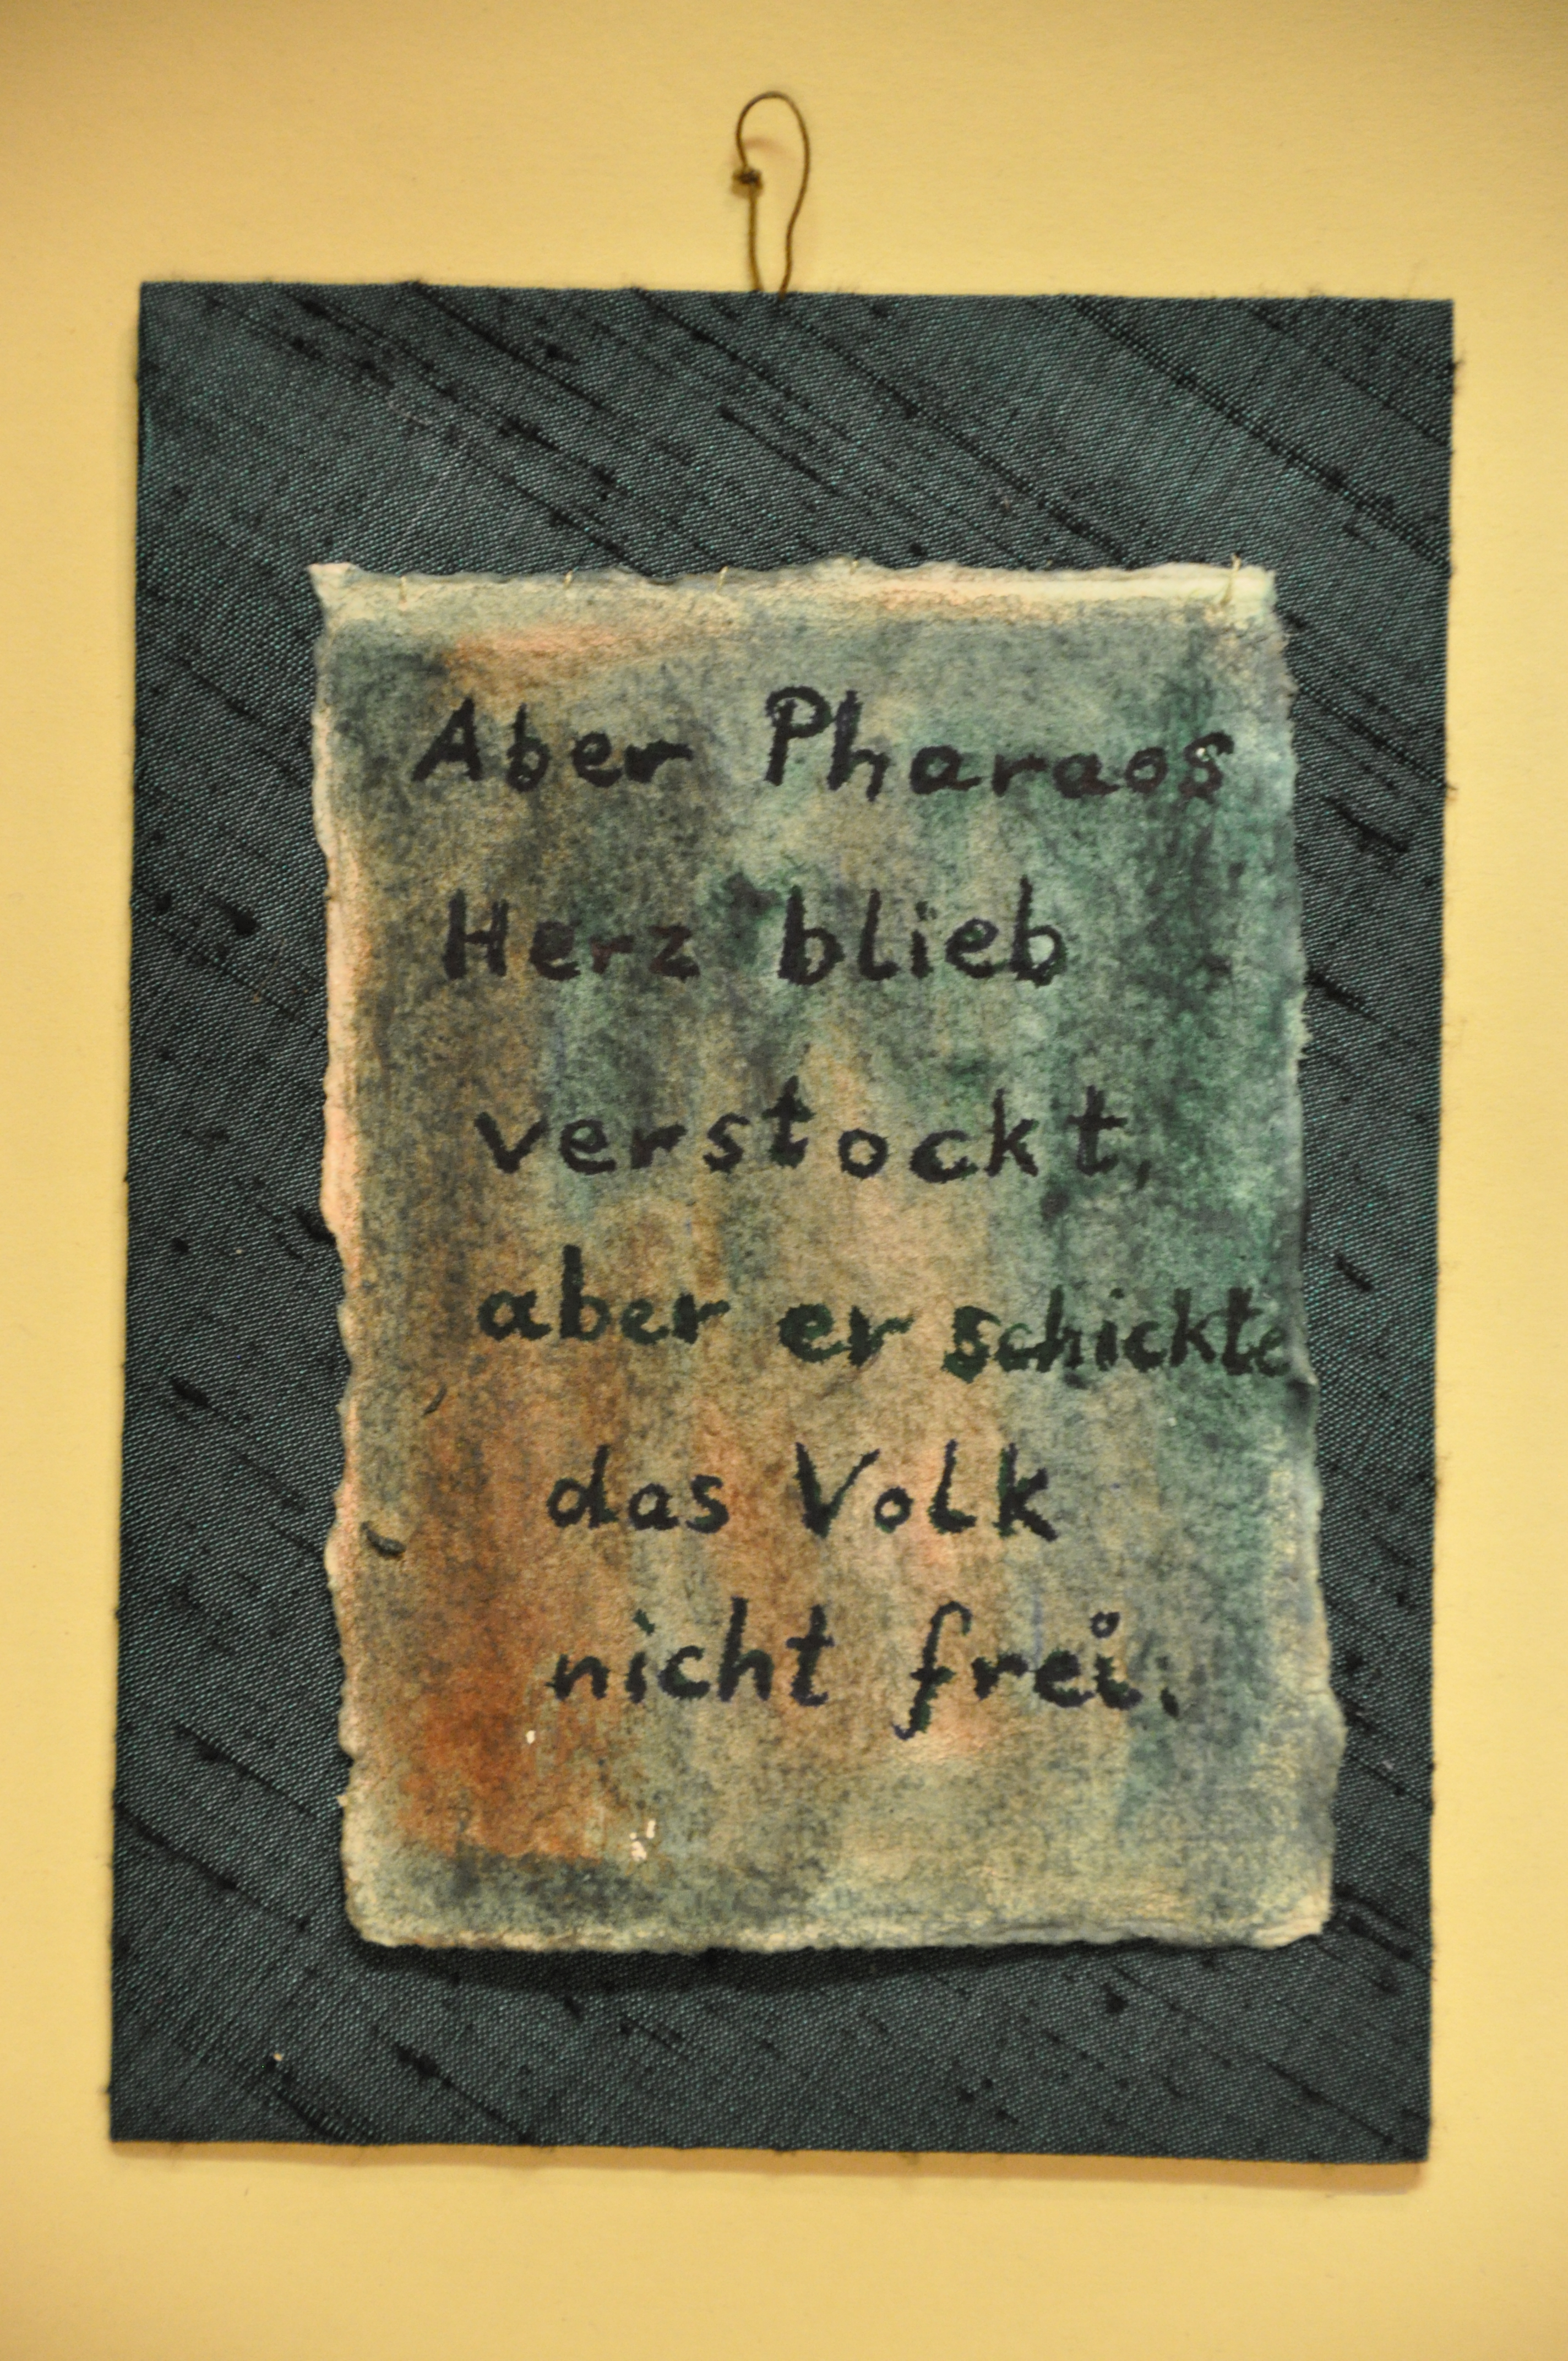 Aber Pharaos
Herz blieb
verstockt,
aber er schickte
das Volk
nicht frei.